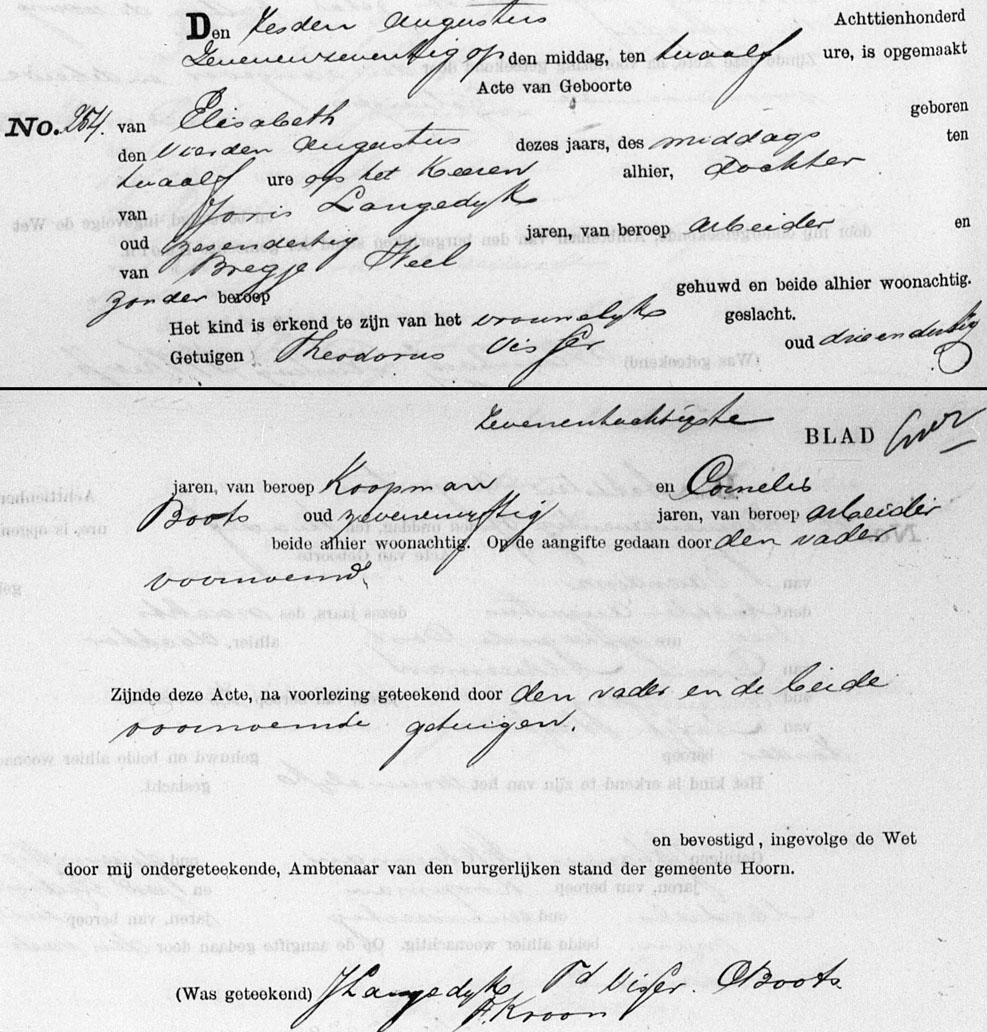 Den zesden Augustus Achttienhonderd
Zevenenzeventig op den middag, ten twaalf ure, is opgemaakt
Acte van Geboorte
No. 254. van Elisabeth geboren
den Vierden Augustus dezes jaars, des middags ten
twaalf ure op het Keeren alhier, dochter
van Joris Langedijk
oud zesendertig jaren, van beroep arbeider en
van Bregje Heel
zonder beroep gehuwd en beide alhier woonachtig.
Het kind is erkend te zijn van het vrouwelijk geslacht.
Getuigen Theodorus Visser oud drieendertig
zevenentachtigste BLAD
jaren, van beroep Koopman en Cornelis
Boots oud zevenenvijftig jaren, van beroep arbeider
beide alhier woonachtig. Op de aangifte gedaan door den vader
voornoemd.
Zijnde deze Acte, na voorlezing geteekend door den vader en de beide
voornoemde getuigen.
en bevestigd, ingevolge de Wet
door mij ondergeteekende, Ambtenaar van den burgerlijken stand der gemeente Hoorn.
(Was geteekend) J Langedijk Td Visser. C Boots.
A. Kroon